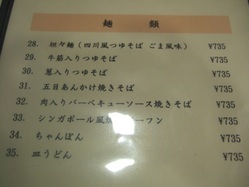 麺類
28. 坦々麺(四川風つゆそば ごま風味) ¥735
29. 牛筋入りつゆそば ¥735
30. 葱入りつゆそば ¥735
31. 五目あんかけ焼きそば ¥735
32. 肉入りバーベキューソース焼きそば ¥735
33. シンガポール風焼きビーフン ¥735
34. ちゃんぽん ¥735
35. 皿うどん ¥735